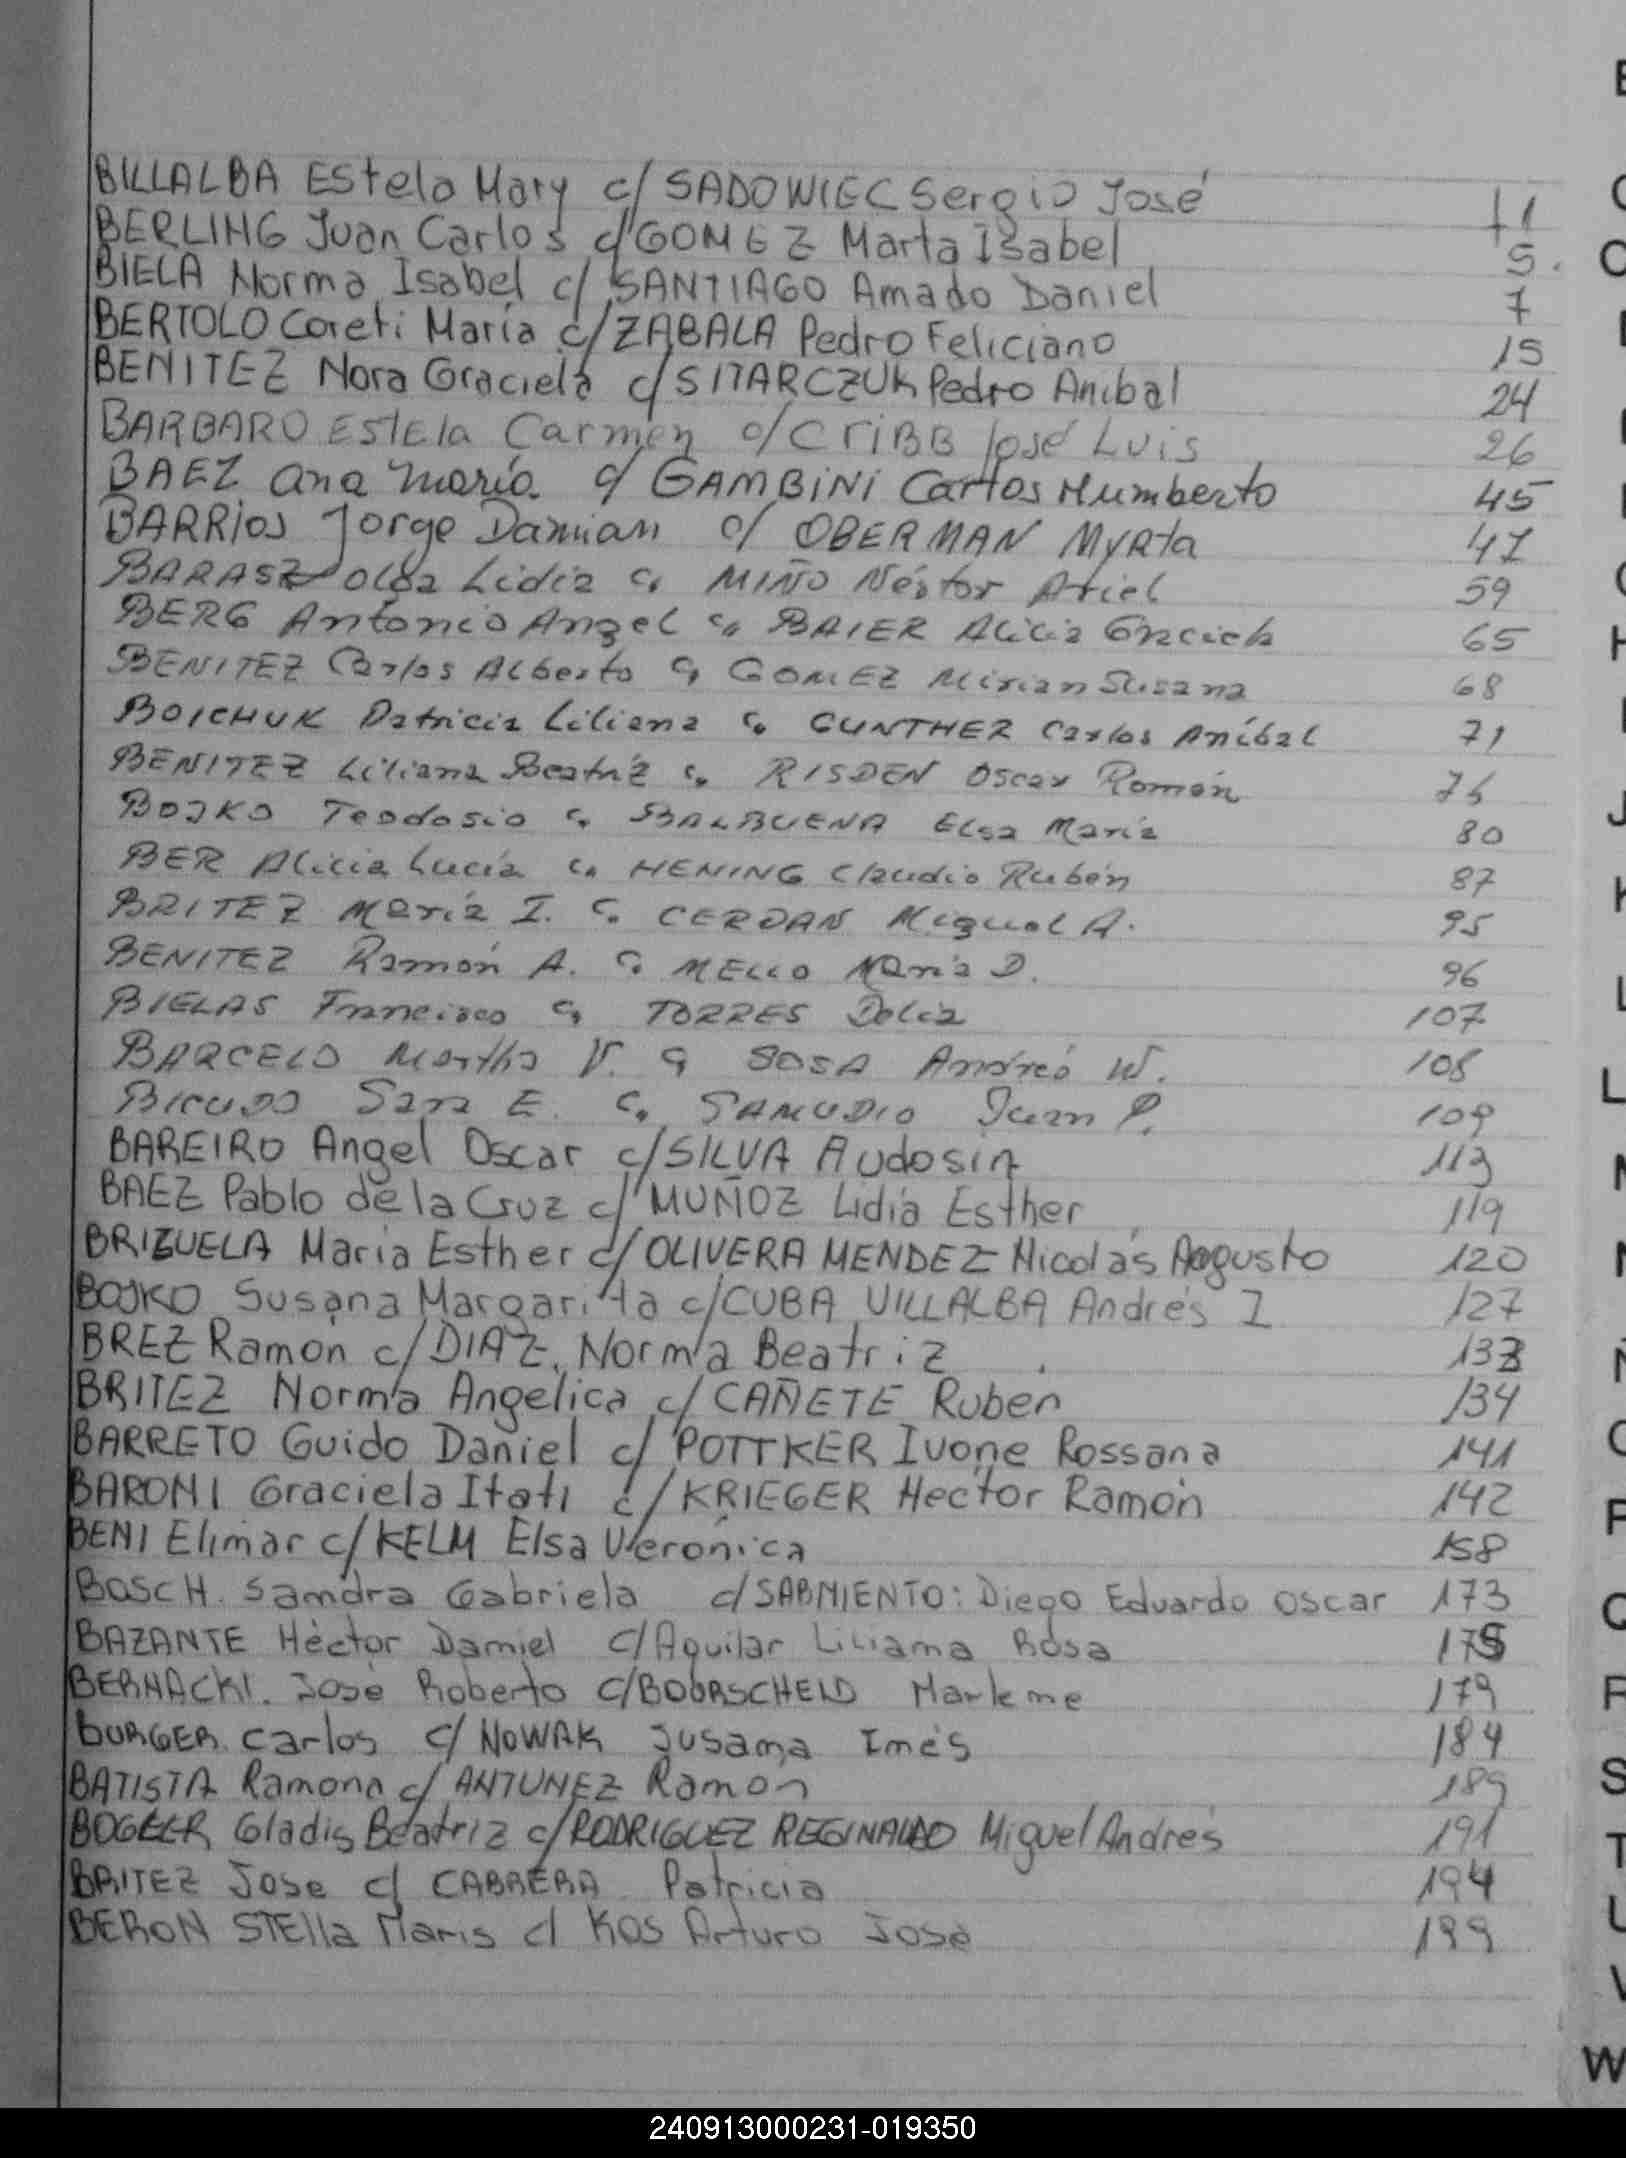 BILLALBA Estela Mary c/ SADOWIEC Sergio José 11
BERLING Juan Carlos c/ GOMEZ Marta Isabel 5.
BIELA Norma Isabel c/ SANTIAGO Amado Daniel 7
BERTOLO Coreti María c/ ZABALA Pedro Feliciano 15
BENITEZ Nora Graciela c/ SITARCZUK Pedro Anibal 24
BARBARO Estela Carmen c/ CRIBB José Luis 26
BAEZ Ana María c/ GAMBINI Carlos Humberto 45
BARRIOS Jorge Damian c/ OBERMAN Myrta 47
BARASZ Olga Lidia c. MIÑO Néstor Ariel 59
BERG Antonio Angel c. BAIER Alicia Graciela 65
BENITEZ Carlos Alberto c. GOMEZ Mirian Susana 68
BOICHUK Patricia Liliana c. GUNTHER Carlos Aníbal 71
BENITEZ Liliana Beatríz c. RISDEN Oscar Román 76
BOJKO Teodosio c. BALBUENA Elsa María 80
BER Alicia Lucía c. HENING Claudio Rubén 87
BRITEZ María I. c. CERDAN Miguel A. 95
BENITEZ Ramón A. c. MELLO María D. 96
BIELAS Francisco c. TORRES Delia 107
BARCELO Martha V. c. SOSA Andrés W. 108
BICUDO Sara E. c. SAMUDIO Juan P. 109
BAREIRO Angel Oscar c/ SILVA Audosia 113
BAEZ Pablo de la Cruz c/ MUÑOZ Lidia Esther 119
BRIZUELA María Esther c/ OLIVERA MENDEZ Nicolás Augusto 120
BOJKO Susana Margarita c/ CUBA VILLALBA Andrés I 127
BREZ Ramón c/ DIAZ, Norma Beatriz 133
BRITEZ Norma Angelica c/ CAÑETE Ruben 134
BARRETO Guido Daniel c/ POTTKER Ivone Rossana 141
BARONI Graciela Itatí c/ KRIEGER Hector Ramón 142
BENI Elimar c/ KELM Elsa Verónica 158
BOSCH. Sandra Gabriela c/ SARMIENTO: Diego Eduardo Oscar 173
BAZANTE Héctor Daniel c/ Aguilar Liliana Rosa 175
BERNACKI. José Roberto c/ BOURSCHEID Marlene 179
BURGER Carlos c/ NOWAK Susana Inés 184
BATISTA Ramona c/ ANTUNEZ Ramon 189
BOGEER Gladis Beatriz c/ RODRIGUEZ REGINALDO Miguel Andrés 191
BRITEZ Jose c/ CABRERA Patricia 194
BERON Stella Maris c/ KOS Arturo José 199
B
C
H
J
K
L
L
N
Ñ
O
P
Q
R
S
T
U
V
W
240913000231-019350